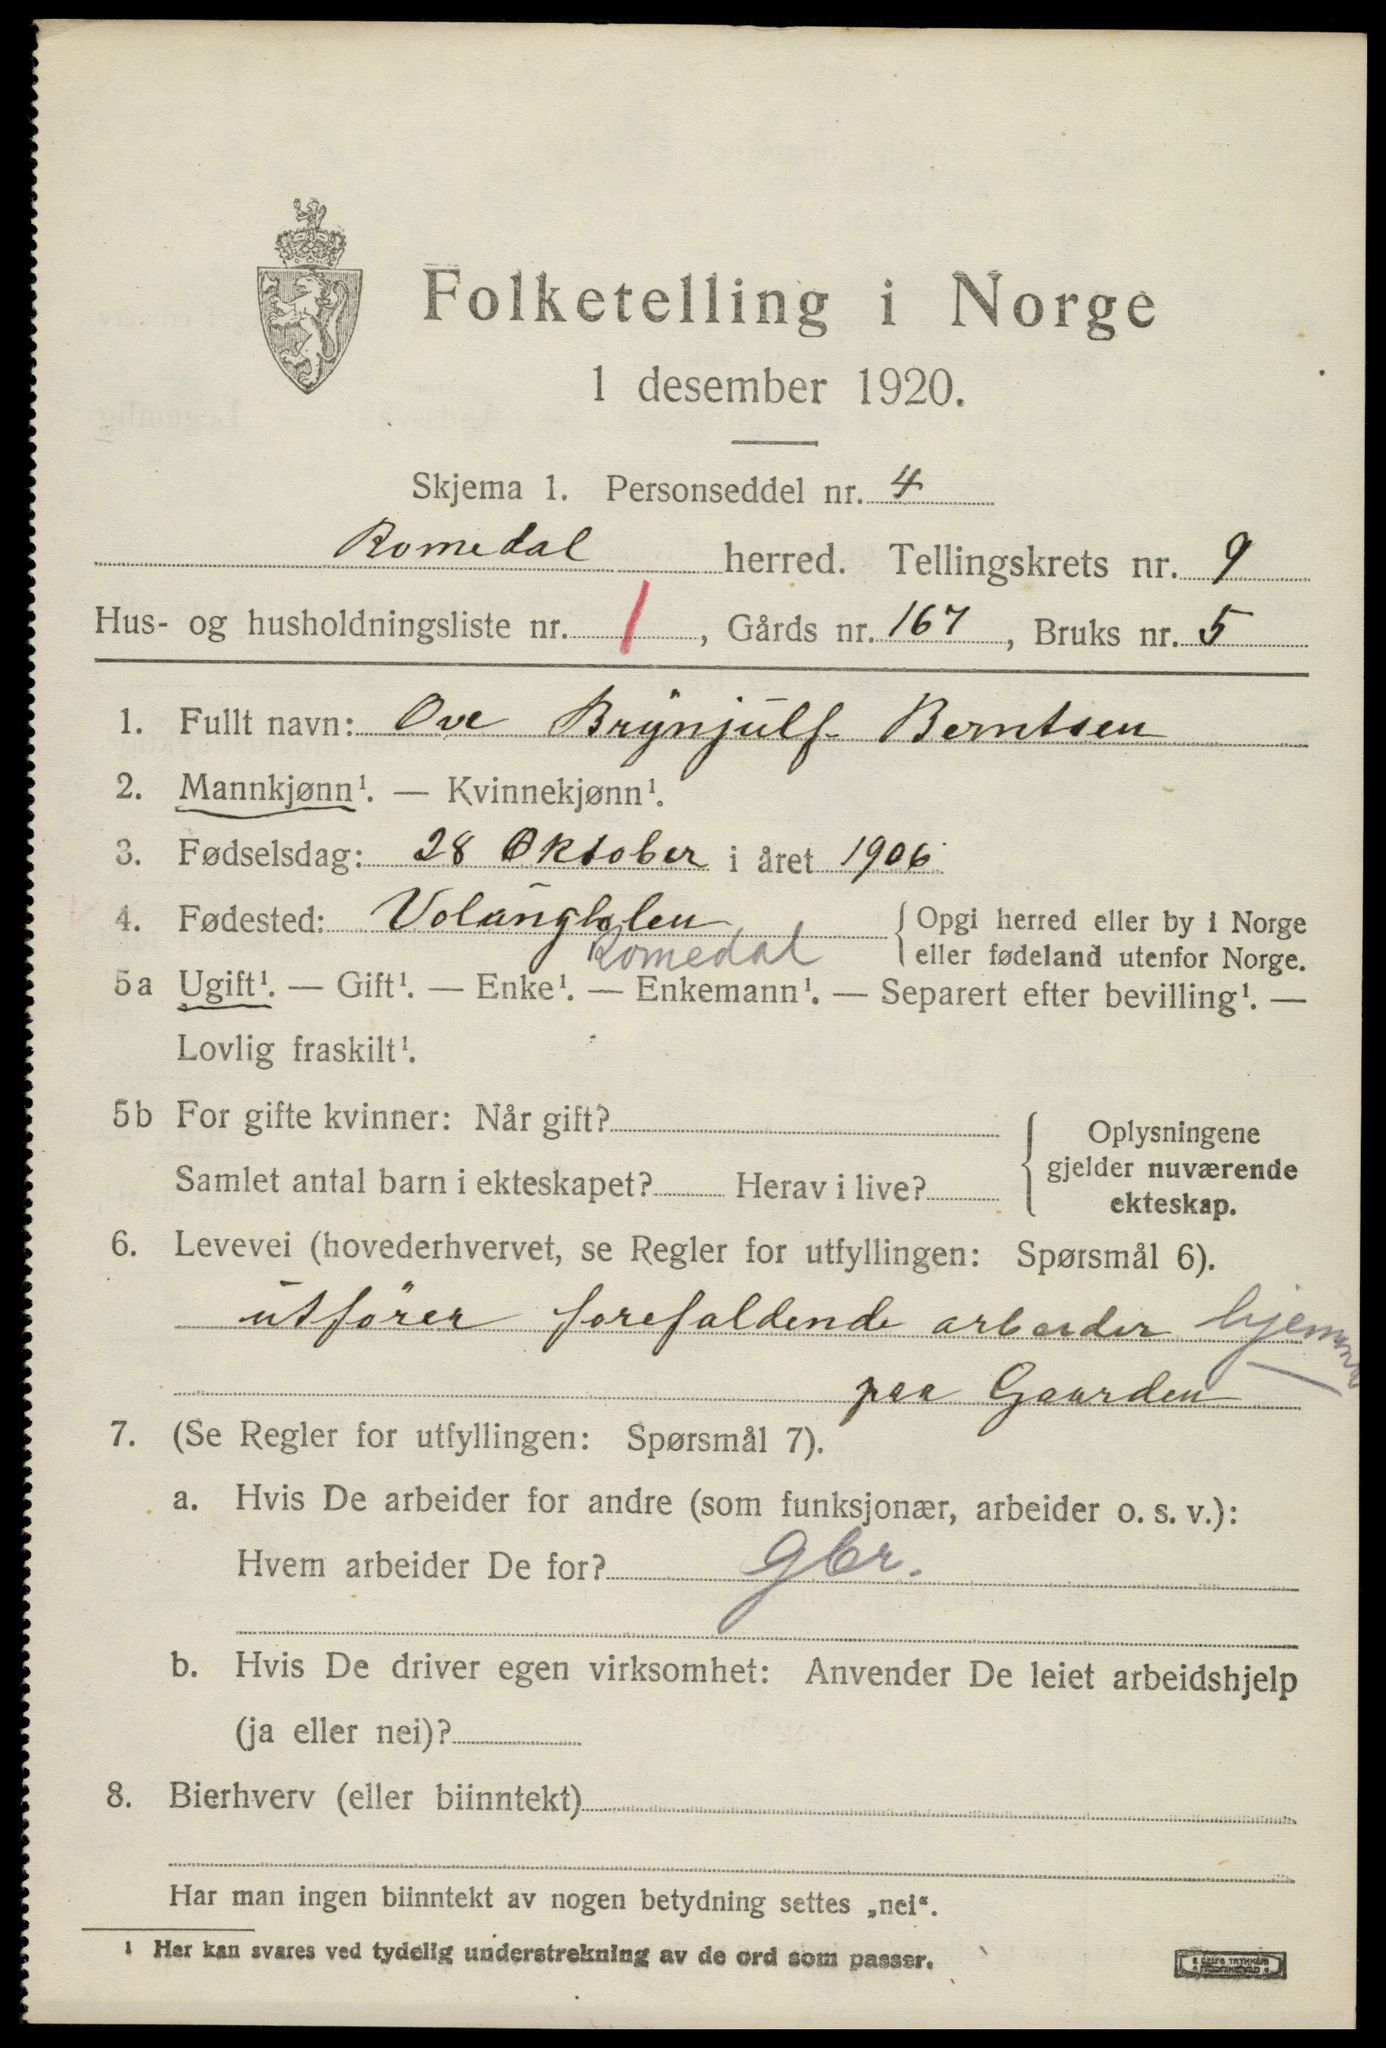 Folketelling i Norge
1 desember 1920.
Skjema 1. Personseddel nr. 4
Romedal herred. Tellingskrets nr. 9
Hus- og husholdningsliste nr. 1, Gårds nr. 167, Bruks nr. 5
1. Fullt navn: Ove Brynjulf Berntsen
2. Mannkjønn¹. — Kvinnekjønn¹.
3. Fødselsdag: 28 Oktober i året 1906
4. Fødested: { Opgi herred eller by i Norge
Romedal eller fødeland utenfor Norge.
5a Ugift¹. — Gift¹. — Enke¹. — Enkemann¹. — Separert efter bevilling¹. —
Lovlig fraskilt¹.
5b For gifte kvinner: Når gift? { Oplysningene
gjelder nuværende
Samlet antal barn i ekteskapet? Herav i live?
ekteskap.
6. Levevei (hovederhvervet, se Regler for utfyllingen: Spørsmål 6).
utfører forefaldende arbeider hjemme
paa Gaarden
7. (Se Regler for utfyllingen: Spørsmål 7).
a. Hvis De arbeider for andre (som funksjonær, arbeider o. s. v.):
Hvem arbeider De for? Gbr.
b. Hvis De driver egen virksomhet: Anvender De leiet arbeidshjelp
(ja eller nei)?
8. Bierhverv (eller biinntekt)
Har man ingen biinntekt av nogen betydning settes „nei“.
¹ Her kan svares ved tydelig understrekning av de ord som passer.